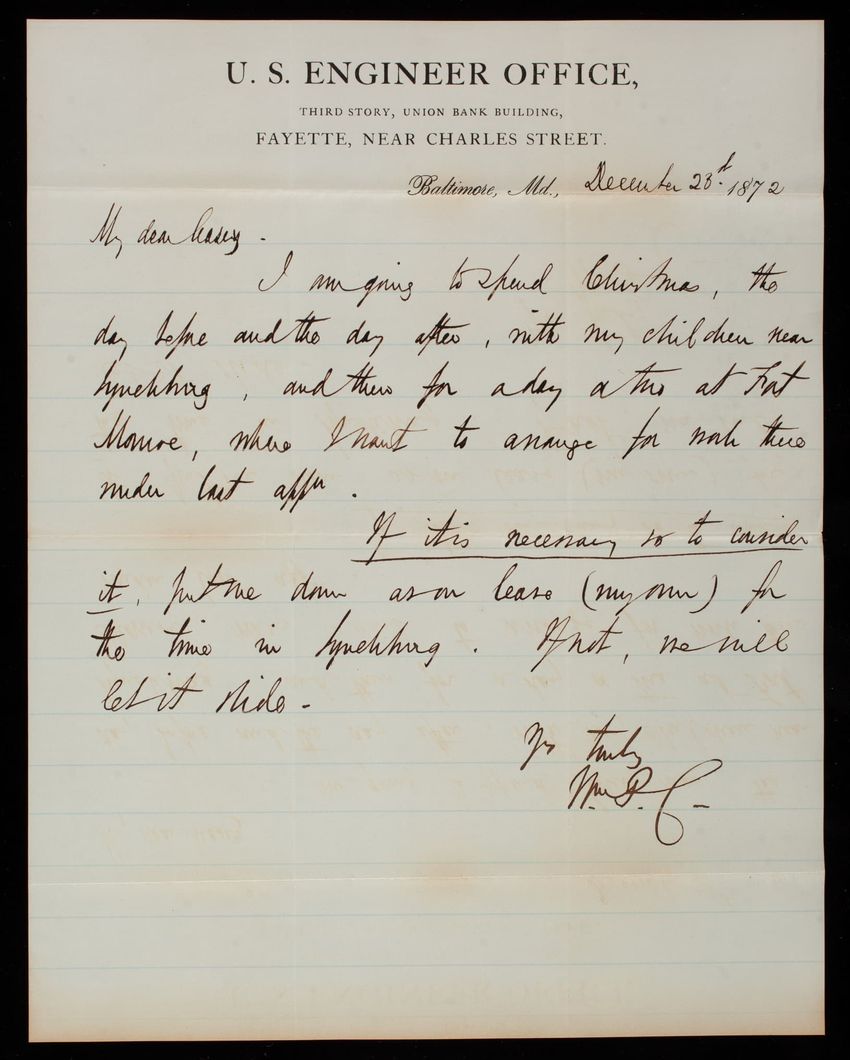 U. S. ENGINEER OFFICE,
THIRD STORY, UNION BANK BUILDING,
FAYETTE, NEAR CHARLES STREET.
Baltimore, Md., December 23d. 1872
My dear Casey -
I am going to spend Christmas, the
day before and the day after, with my children near
Lynchburg, and then for a day or two at Fort
Monroe, where I want to arrange for work there
under last appn.
If it is necessary so to consider
it, put me down as on leave (my own) for
the time in Lynchburg. If not, we will
let it slide -
Yrs truly
Wm. P. C. -